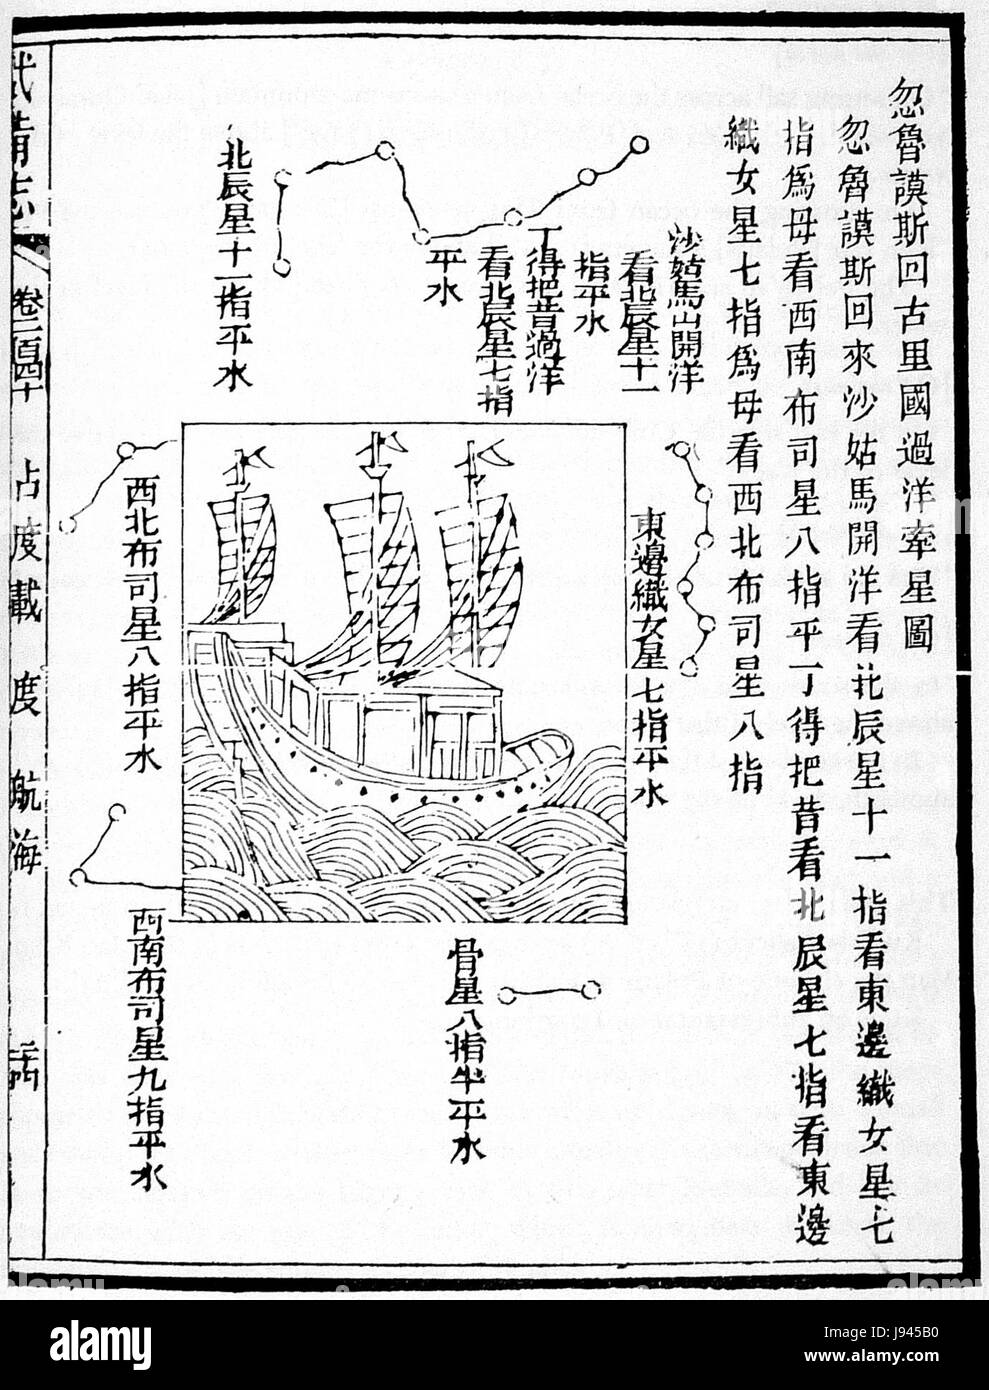 忽魯謨斯回古里國過洋牽星圖
忽魯謨斯回來沙姑馬開洋看北辰星十一指看東邊織女星七
指爲母看西南布司星八指平丁得把昔看北辰星七指看東邊
織女星七指爲母看西北布司星八指
沙姑馬山開洋
看北辰星十一
指平水
丁得把昔過洋
看北辰星七指
平水
北辰星十一指平水
東邊織女星七指平水
西北布司星八指平水
西南布司星九指平水
骨星八指半平水
武備志
卷二百四十
占度載
度
航海
alamy
alamy
Image ID: J945B0
www.alamy.com